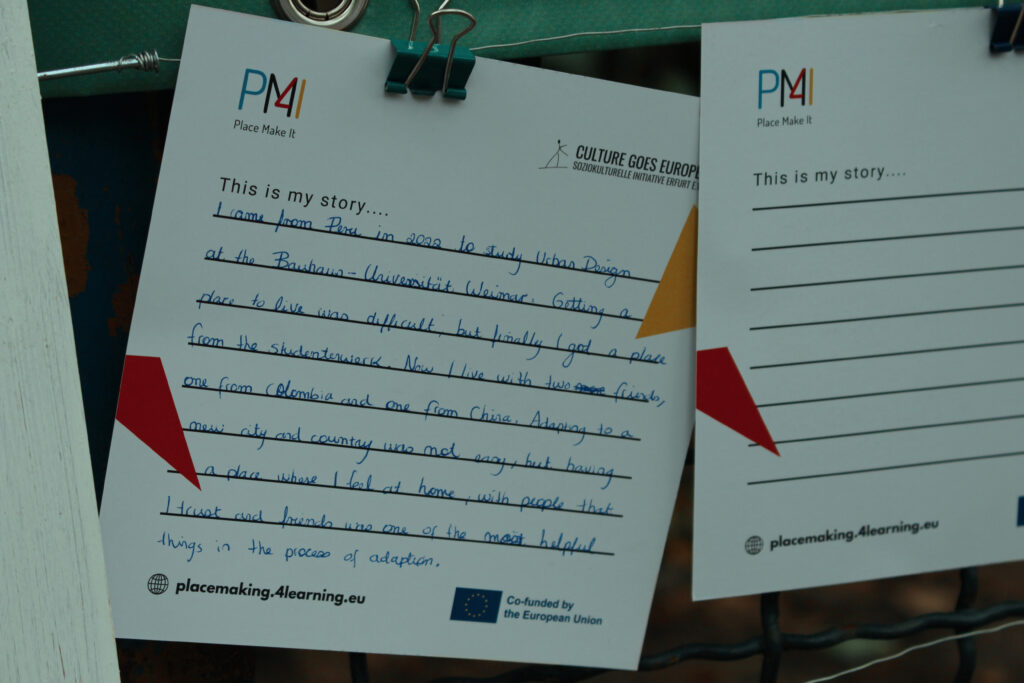 PM4I
Place Make It
CULTURE GOES EUROP
SOZIOKULTURELLE INITIATIVE ERFURT E
This is my story....
I came from Peru in 2022 to study Urban Design
at the Bauhaus-Universität Weimar. Getting a
place to live was difficult, but finally I got a place
from the studentenwerk. Now I live with two friends,
one from Colombia and one from China. Adaping to a
new city and country was not easy, but having
a place where I feel at home, with people that
I trust and friends was one of the most helpful
things in the process of adaption.
placemaking.4learning.eu
Co-funded by
the European Union
PM4I
Place Make It
This is my story....
placemaking.4learning.eu